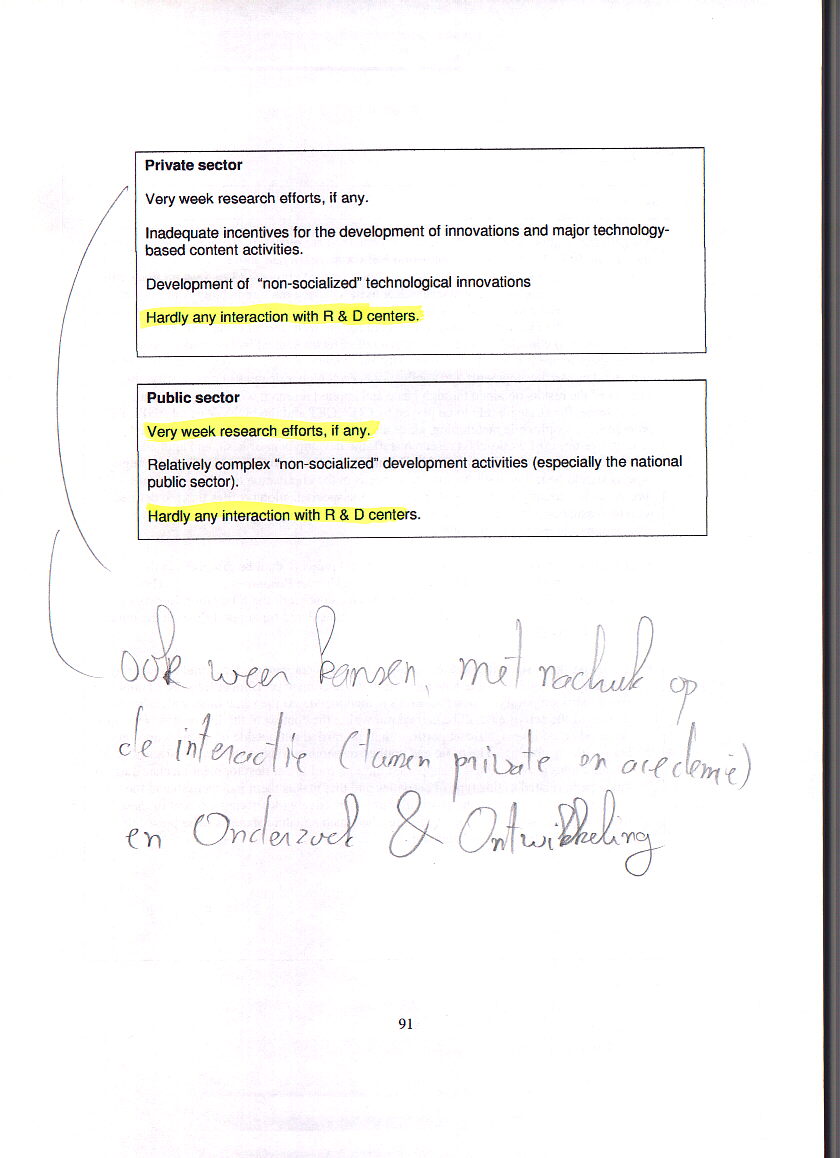 Private sector
Very week research efforts, if any.
Inadequate incentives for the development of innovations and major technology-
based content activities.
Development of "non-socialized" technological innovations
Hardly any interaction with R & D centers.
Public sector
Very week research efforts, if any.
Relatively complex "non-socialized" development activities (especially the national
public sector).
Hardly any interaction with R & D centers.
ook weer kansen, met nadruk op
de interactie (tussen private en academie)
en Onderzoek & Ontwikkeling
91